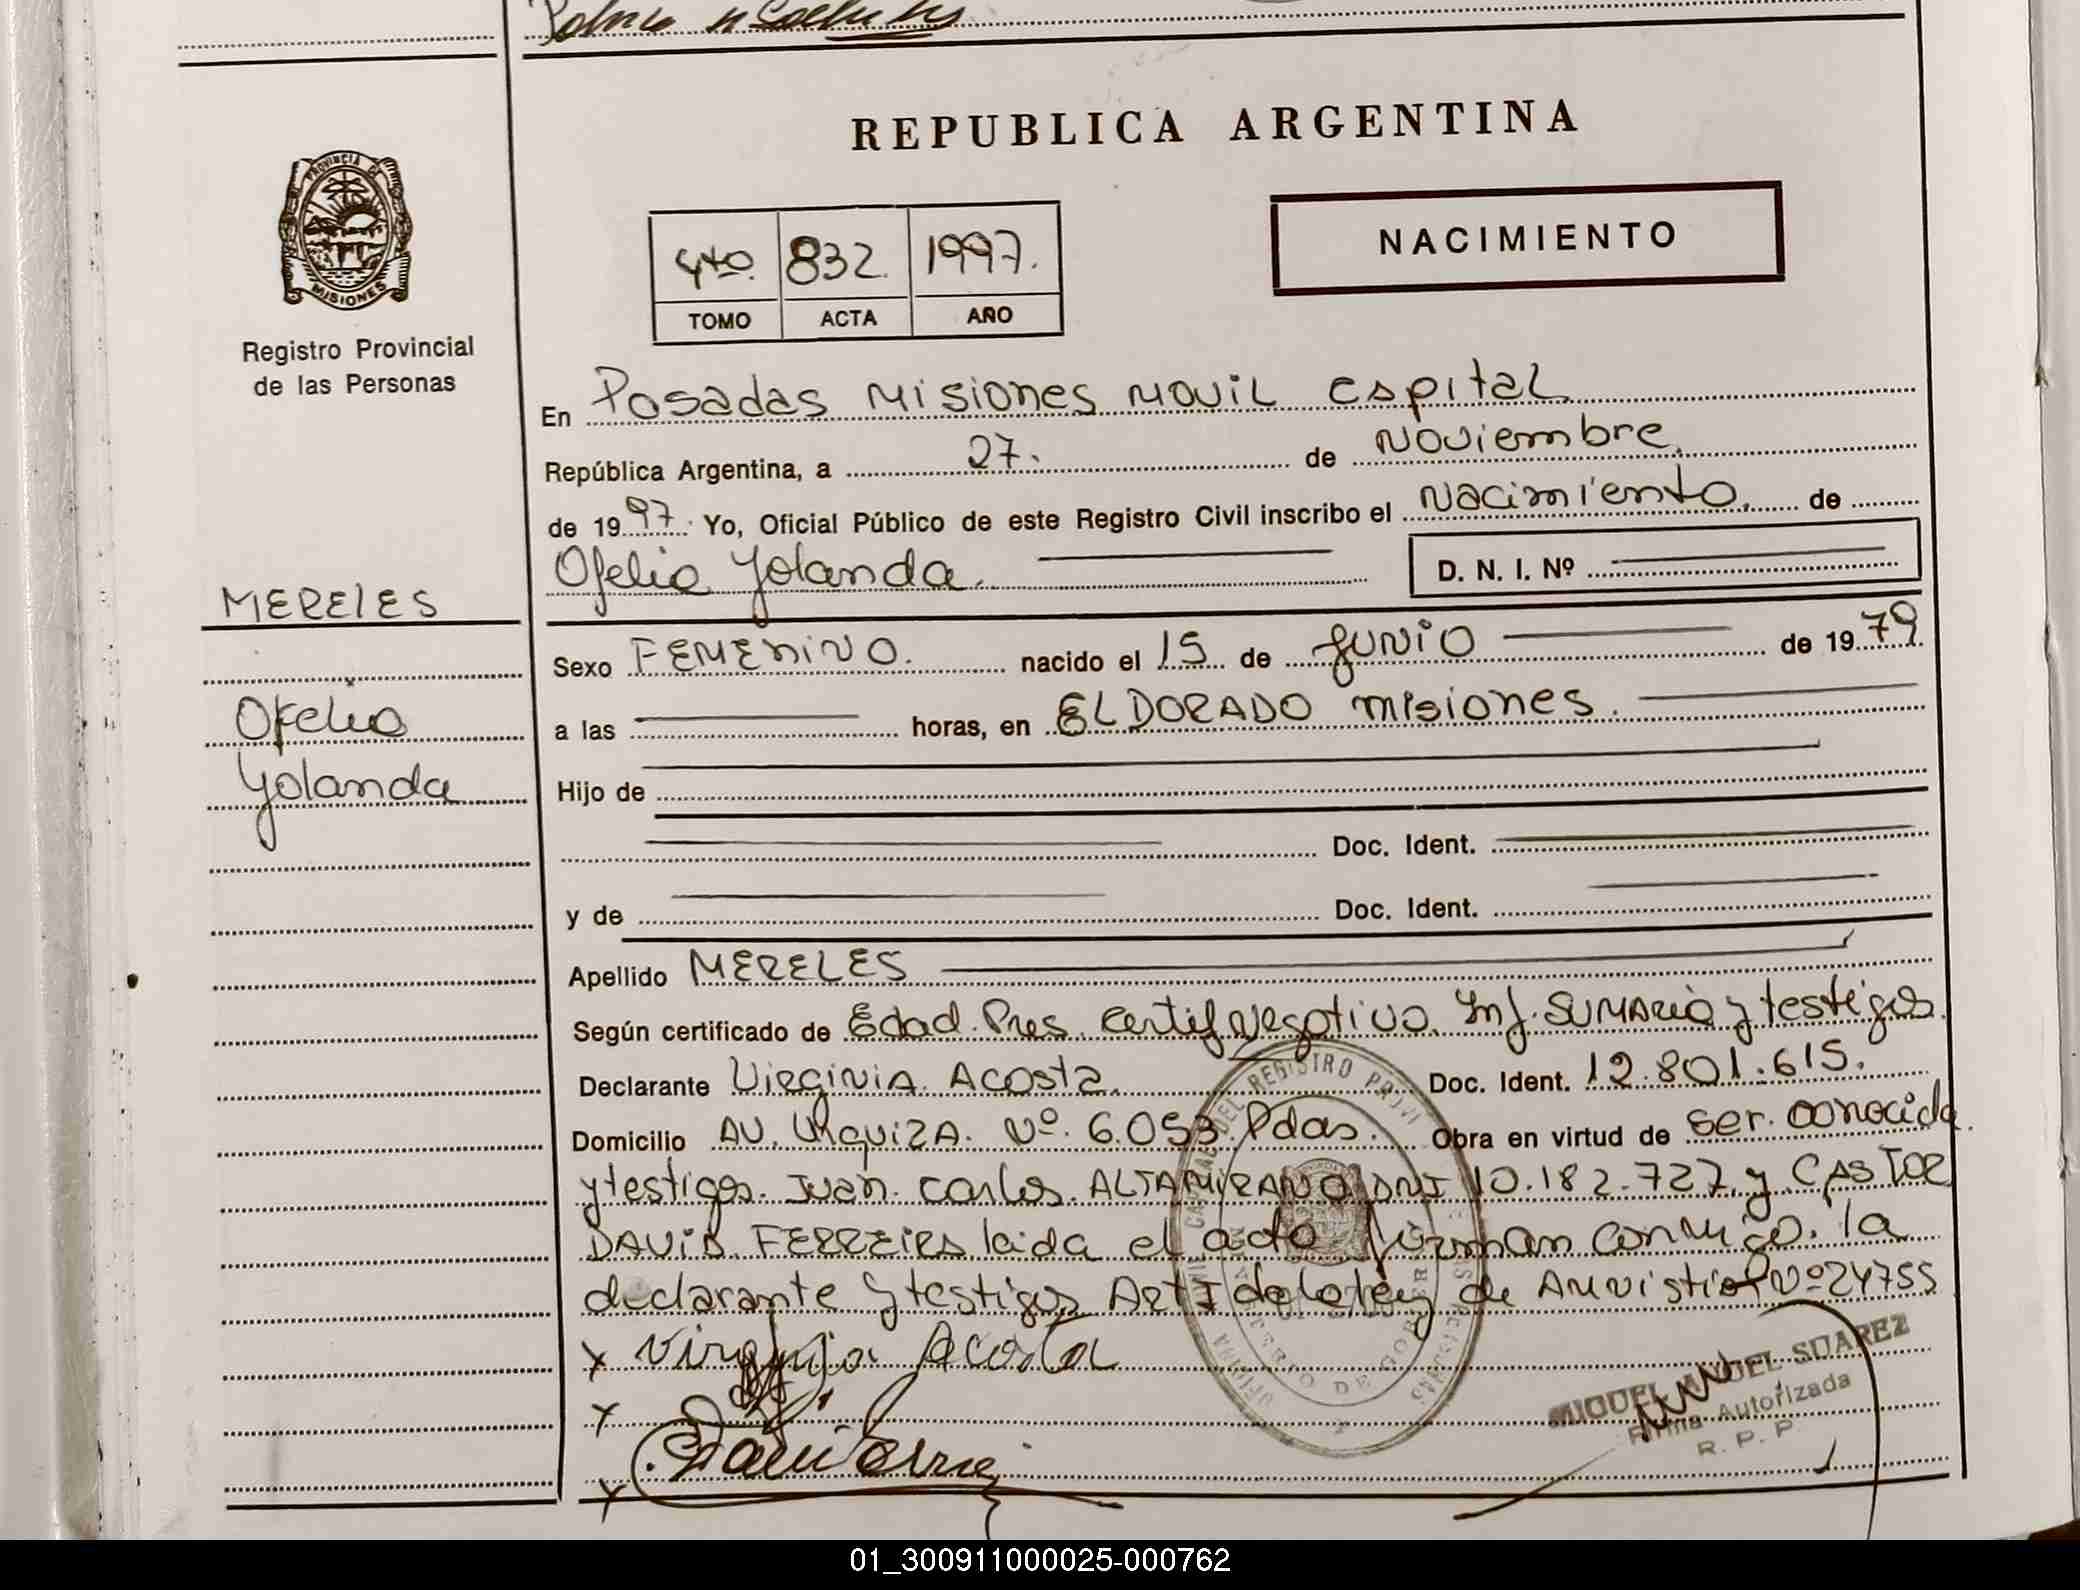 REPUBLICA ARGENTINA
PROVINCIA DE
MISIONES
Registro Provincial
de las Personas
4to. 832. 1997.
TOMO ACTA AÑO
NACIMIENTO
En Posadas Misiones Movil Espital
República Argentina, a 27. de Noviembre.
de 1997. Yo, Oficial Público de este Registro Civil inscribo el Nacimiento. de
Ofelia Yolanda. D. N. I. Nº
MERELES
Ofelia
Yolanda
Sexo FEMENINO. nacido el 15 de JUNIO de 1979
a las horas, en ELDORADO Misiones.
Hijo de
Doc. Ident.
y de Doc. Ident.
Apellido MERELES
Según certificado de Edad. Pres. Certif Negativo. Inf. SUMARIO y testigos.
Declarante Virginia Acosta. Doc. Ident. 12.801.615.
Domicilio AV. Urquiza. Nº. 6.053. Pdas. Obra en virtud de ser. conocida.
y testigos. Juan. Carlos. ALTAMIRANO DNI 10.182.727. y CASTOR
DAVID FERREIRA leida el acta firman conmigo. la
declarante y testigos Art I de la ley de Amnistia Nº 24755
x Virginia Acosta
x
x
MIGUEL ANGEL SUAREZ
Firma Autorizada
R. P. P.
01_300911000025-000762